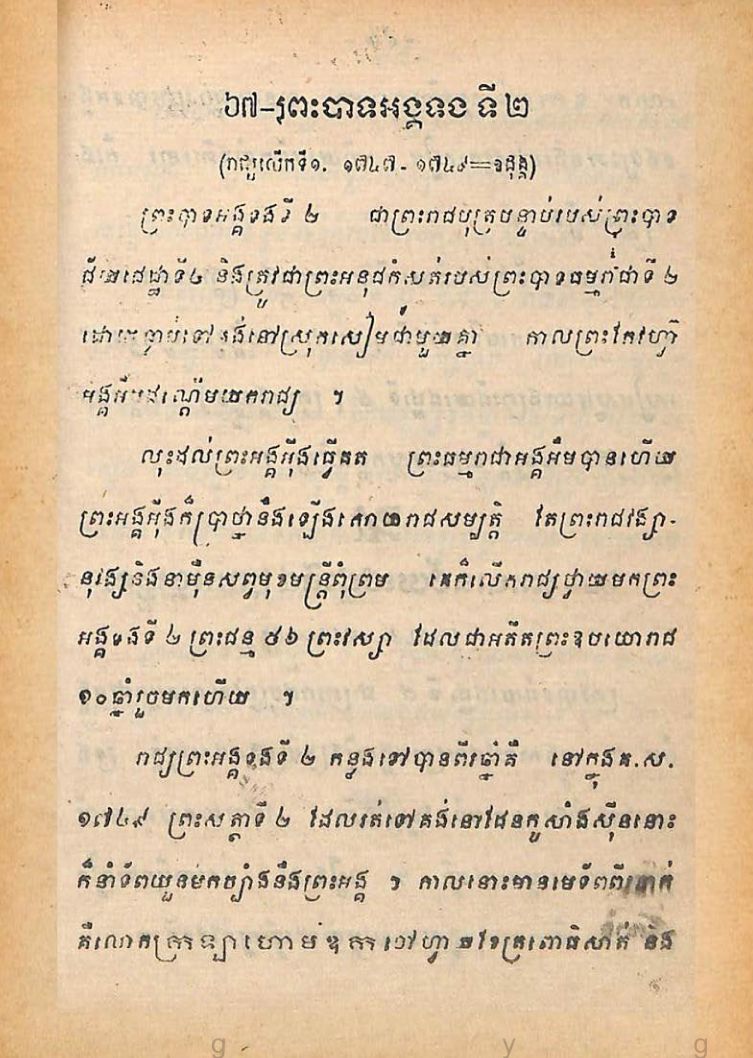 ៦៧-ព្រះបាទអង្គទង ទី ២
(រាជ្យលើកទី១. ១៧៤៧-១៧៤៩=ឧដុង្គ)
ព្រះបាទអង្គទងទី ២ ជាព្រះរាជបុត្របន្ទាប់របស់ព្រះបាទ
ជ័យជេដ្ឋាទី៤ និងត្រូវជាព្រះអនុជកំសត់របស់ព្រះបាទធម្មរាជាទី ២
ទៅ នៅស្រុកសៀមជាមួយគ្នា កាលព្រះកែវហ្វ៊ា
អង្គអឹមដណ្ដើមយករាជ្យ ។
លុះដល់ព្រះអង្គអ៊ីងធ្វើគត ព្រះធម្មរាជាអង្គអឹមបានហើយ
ព្រះអង្គអ៊ីងក៏ប្រាថ្នានឹងឡើងសោយរាជសម្បត្តិ តែព្រះរាជវង្សា-
នុវង្សនិងនាម៉ឺនសព្វមុខមន្ត្រីពុំព្រម គេក៏លើករាជ្យថ្វាយមកព្រះ
អង្គទងទី ២ ព្រះជន្ម ៥៦ ព្រះវស្សា ដែលជាអតីតព្រះឧបយោរាជ
១០ឆ្នាំរួចមកហើយ ។
រាជ្យព្រះអង្គទងទី ២ កន្លងទៅបានពីរឆ្នាំគឺ នៅក្នុងគ.ស.
១៧៤៩ ព្រះសត្ថាទី ២ ដែលរត់ទៅគង់នៅដែនកូសាំងស៊ីននោះ
ក៏នាំទ័ពយួនមកច្បាំងនឹងព្រះអង្គ ។ កាលនោះមានមេទ័ពពីរនាក់
គឺលោកក្រឡាហោម ឧក ចៅហ្វាយខែត្រពោធិសាត់ និង
g y g